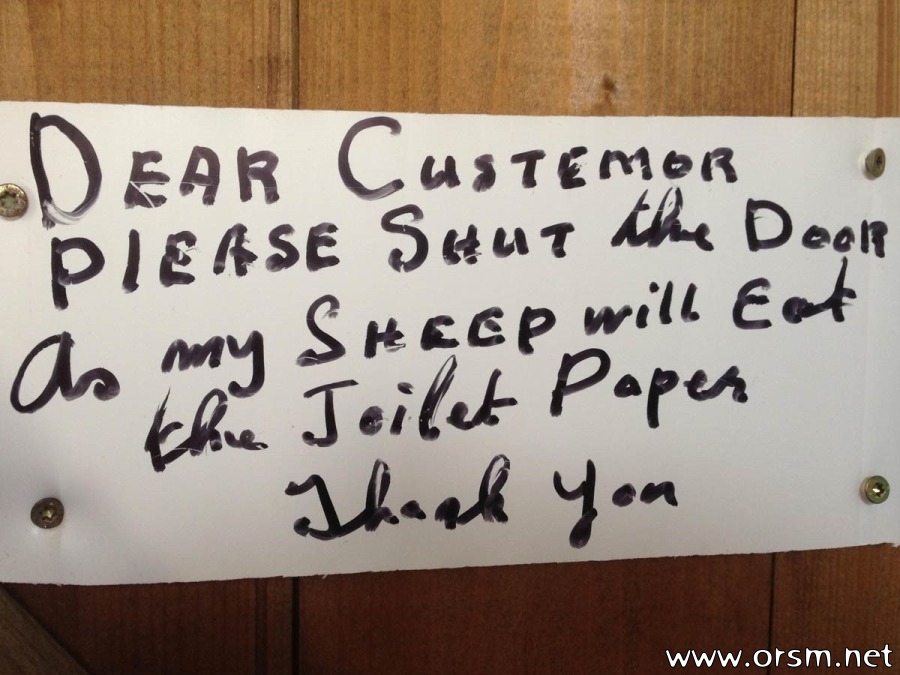 DEAR CUSTEMOR
PLEASE SHUT the DOOR
As my SHEEP will Eat
the Toilet Paper
Thank You
www.orsm.net